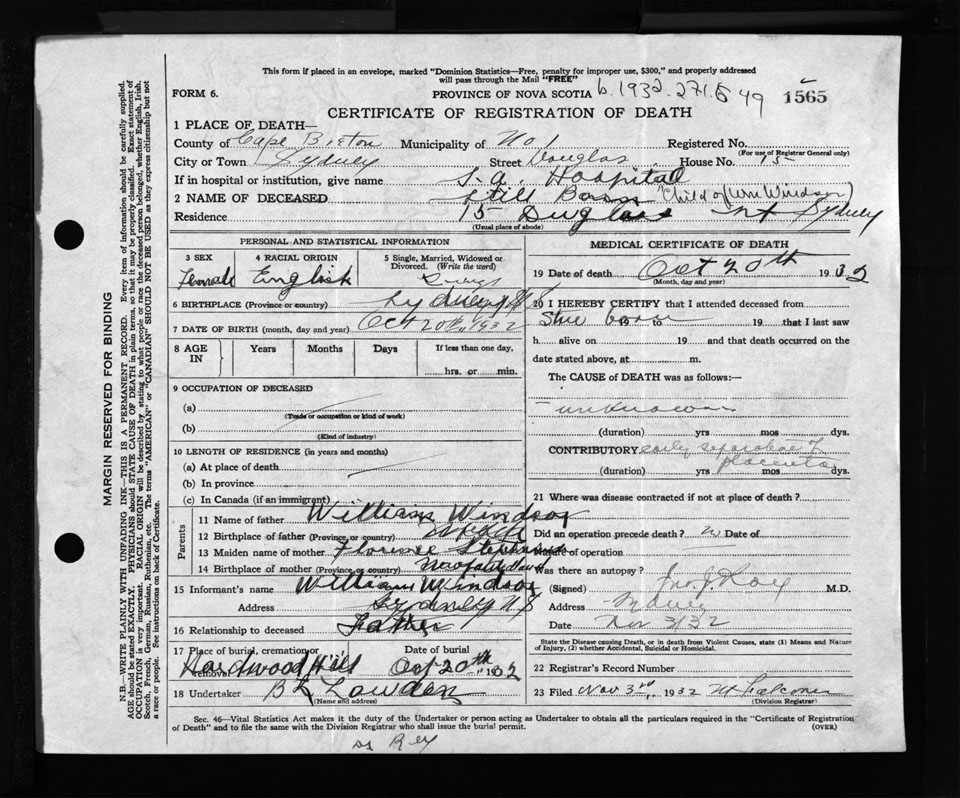 This form if placed in an envelope, marked "Dominion Statistics—Free, penalty for improper use, $300," and properly addressed
will pass through the Mail "FREE"
FORM 6.
PROVINCE OF NOVA SCOTIA 1565
CERTIFICATE OF REGISTRATION OF DEATH
1 PLACE OF DEATH—
County of Cape Breton Municipality of No 1 Registered No.
(For use of Registrar General only)
City or Town Sydney Street Douglas House No. 15
If in hospital or institution, give name Hospital
2 NAME OF DECEASED Still Born (Child of Wm Windsor)
Residence 15 St Sydney
(Usual place of abode)
PERSONAL AND STATISTICAL INFORMATION
3 SEX 4 RACIAL ORIGIN 5 Single, Married, Widowed or
Divorced. (Write the word)
Female English
6 BIRTHPLACE (Province or country) Sydney N S
7 DATE OF BIRTH (month, day and year) Oct 20th 1932
8 AGE IN Years Months Days If less than one day,
hrs. or min.
9 OCCUPATION OF DECEASED
(a)
(Trade or occupation or kind of work)
(b)
(Kind of industry)
10 LENGTH OF RESIDENCE (in years and months)
(a) At place of death
(b) In province
(c) In Canada (if an immigrant)
Parents
11 Name of father William Windsor
12 Birthplace of father (Province or country)
13 Maiden name of mother Florence
14 Birthplace of mother (Province or country)
15 Informant's name William Windsor
Address Sydney N S
16 Relationship to deceased Father
17 Place of burial, cremation or removal Date of burial
Hardwood Hill Oct 20th 1932
18 Undertaker Lowden
(Name and address)
MEDICAL CERTIFICATE OF DEATH
19 Date of death Oct 20th 1932
(Month, day and year)
20 I HEREBY CERTIFY that I attended deceased from
19 to 19 that I last saw
h alive on 19 and that death occurred on the
date stated above, at m.
The CAUSE of DEATH was as follows:—
unknown
(duration) yrs mos dys.
CONTRIBUTORY early separation of
placenta
(duration) yrs mos dys.
21 Where was disease contracted if not at place of death?
Did an operation precede death? Date of
Nature of operation
Was there an autopsy?
(Signed) M.D.
Address
Date Nov 3/32
State the Disease causing Death, or in death from Violent Causes, state (1) Means and Nature
of Injury, (2) whether Accidental, Suicidal or Homicidal.
22 Registrar's Record Number
23 Filed Nov 3rd 1932 Falconer
(Division Registrar)
Sec. 46—Vital Statistics Act makes it the duty of the Undertaker or person acting as Undertaker to obtain all the particulars required in the "Certificate of Registration
of Death" and to file the same with the Division Registrar who shall issue the burial permit. (OVER)
MARGIN RESERVED FOR BINDING
N.B.—WRITE PLAINLY WITH UNFADING INK—THIS IS A PERMANENT RECORD. Every item of information should be carefully supplied.
AGE should be stated EXACTLY. PHYSICIANS should STATE CAUSE OF DEATH in plain terms, so that it may be properly classified. Exact statement of
OCCUPATION is very important. RACIAL ORIGIN will be described by stating to what people or race the deceased person belonged, whether English, Irish,
Scotch, French, German, Russian, Ruthenian, etc. The terms "AMERICAN" or "CANADIAN" SHOULD NOT BE USED as they express citizenship but not
a race or people. See instructions on back of Certificate.